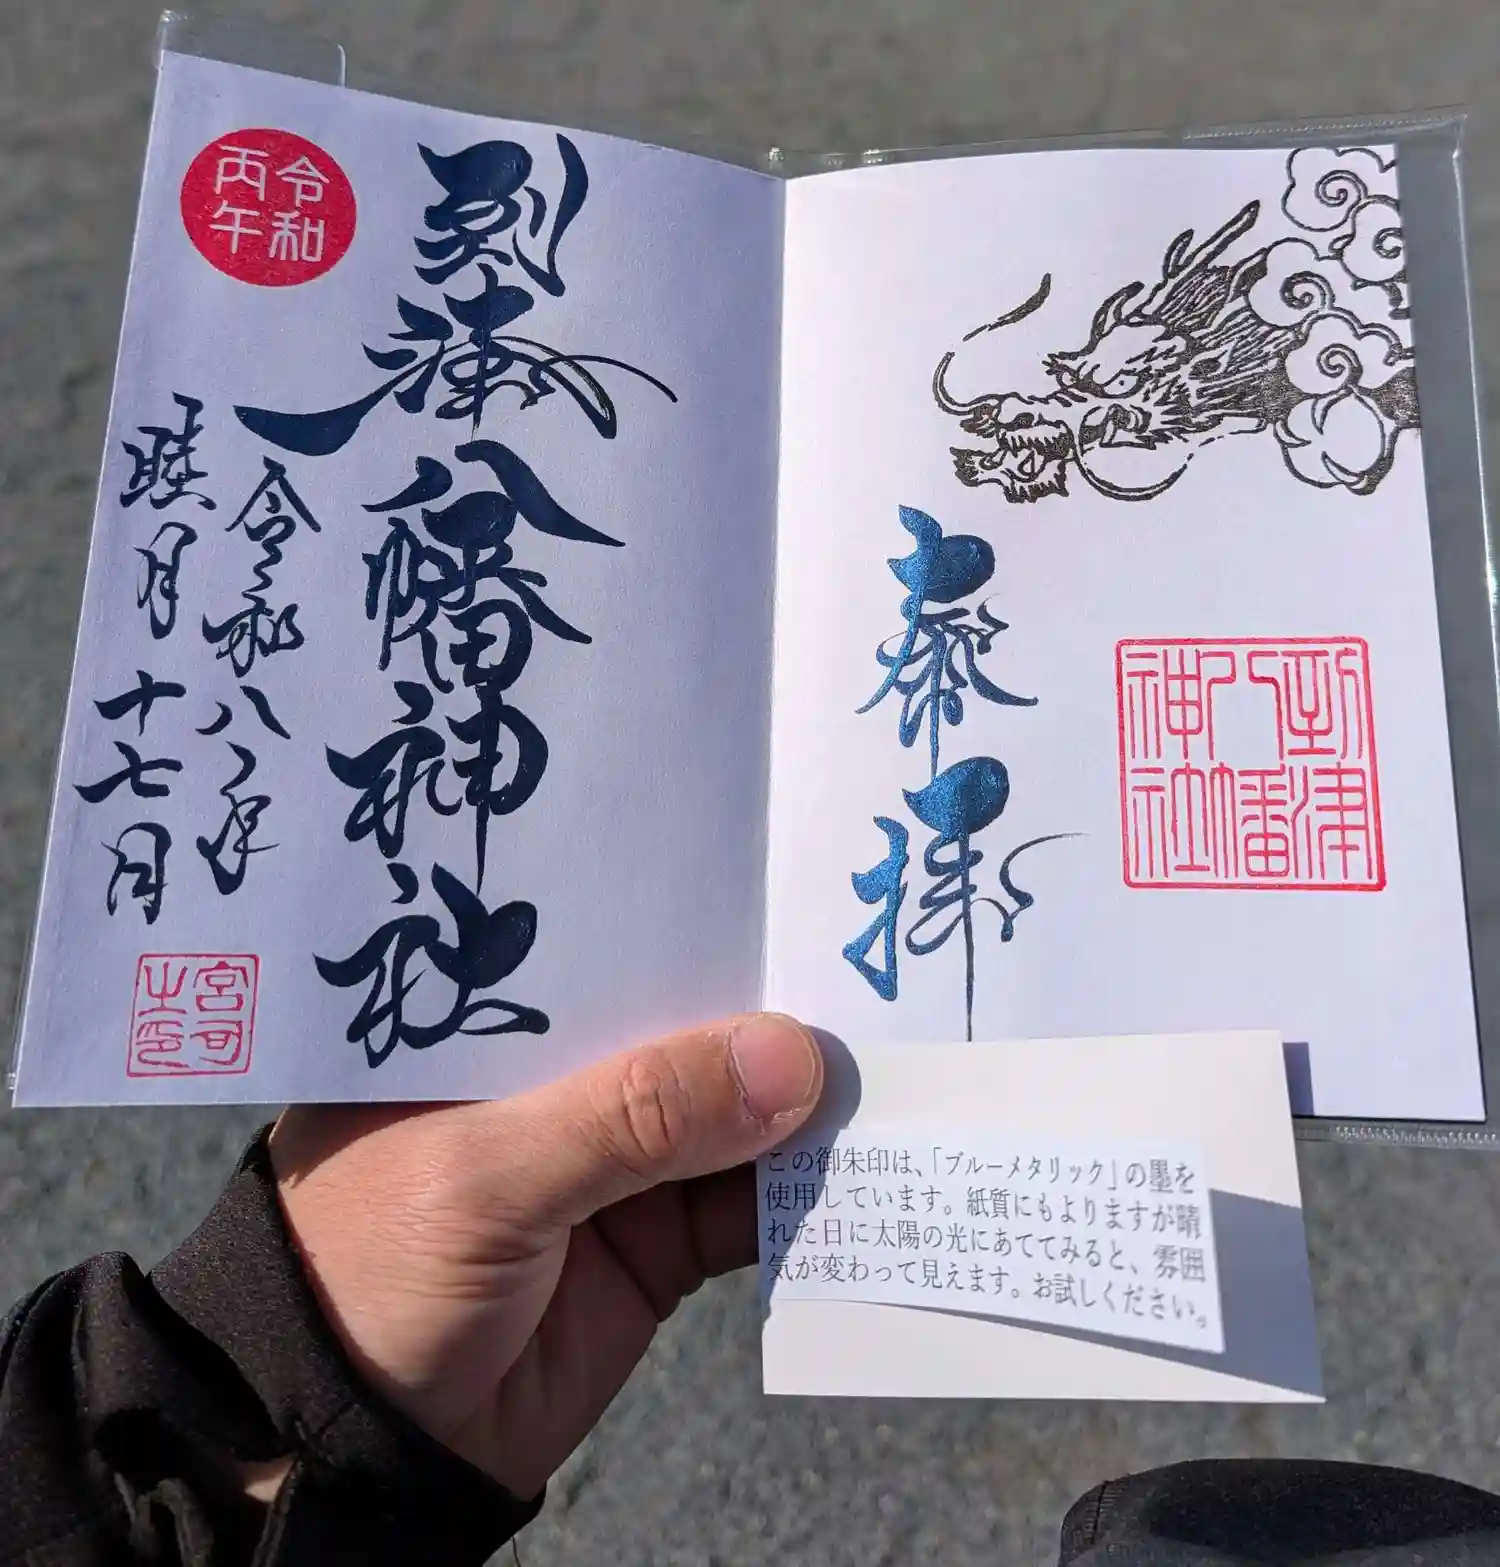 奉拝
到津
八幡
神社
到津八幡神社
令和
丙午
令和八年
睦月十七日
宮司
之印
この御朱印は、「ブルーメタリック」の墨を
使用しています。紙質にもよりますが晴
れた日に太陽の光にあててみると、雰囲
気が変わって見えます。お試しください。